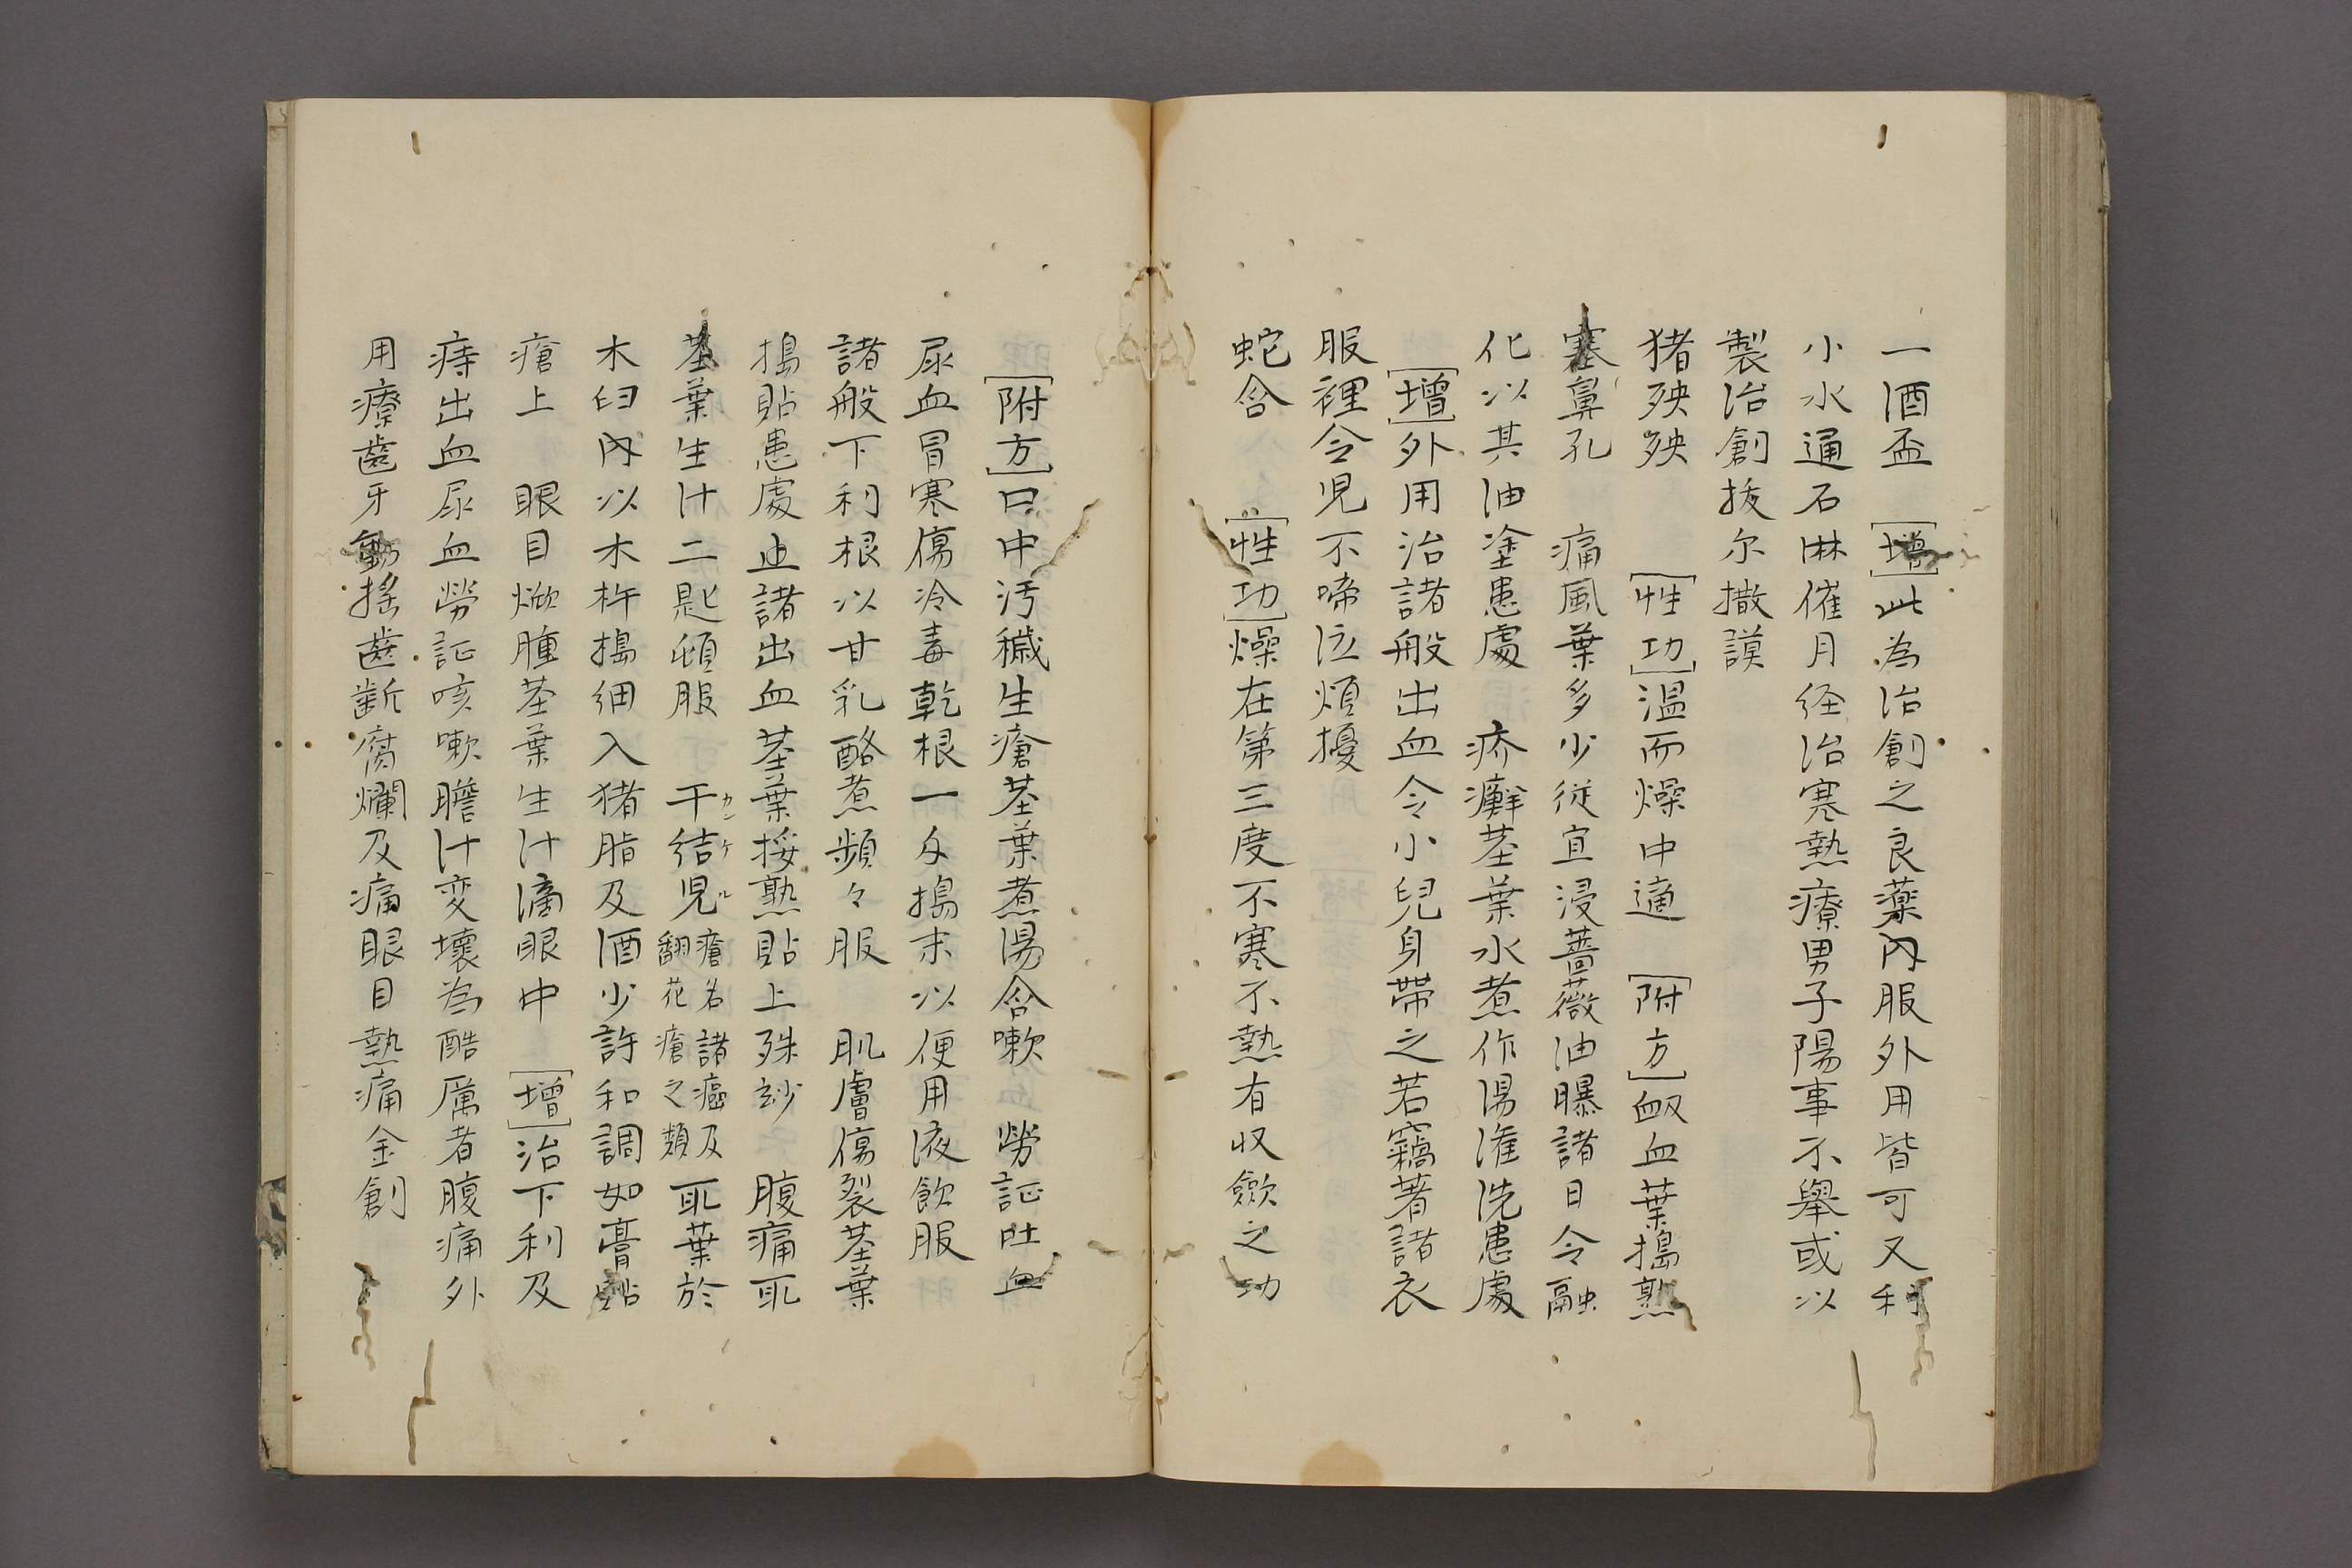 一酒盃　[增]此為治創之良薬内服外用皆可又利
小水通石淋催月経治寒熱療男子陽事不舉或以
製治創拔尓撒謨
猪殃殃　[性功]温而燥中適　[附方]衂血葉搗熟
塞鼻孔　痛風葉多少従宜浸薔薇油曝諸日令融
化以其油塗患處　疥癬茎葉水煮作湯潅洗患處
[增]外用治諸般出血令小兒身帶之若竊著諸衣
服裡令児不啼泣煩擾
蛇含　[性功]燥在第三度不寒不熱有収斂之功
[附方]口中汚穢生瘡茎葉煮湯含嗽　勞証吐血
尿血冒寒傷冷毒乾根一匁搗末以便用液飲服
諸般下利根以甘乳酪煮頻々服　肌膚傷裂茎葉
搗貼患處止諸出血茎葉挼熟貼上殊紗　腹痛取
茎葉生汁二匙頓服　干結児カンケル瘡名諸癌及翻花瘡之類取葉於
木臼内以木杵搗細入猪脂及酒少許和調如膏貼
瘡上　眼目焮腫茎葉生汁滴眼中　[增]治下利及
痔出血尿血勞証咳嗽膽汁変壊為酷厲者腹痛外
用療齒牙動揺齒齗腐爛及痛眼目熱痛金創